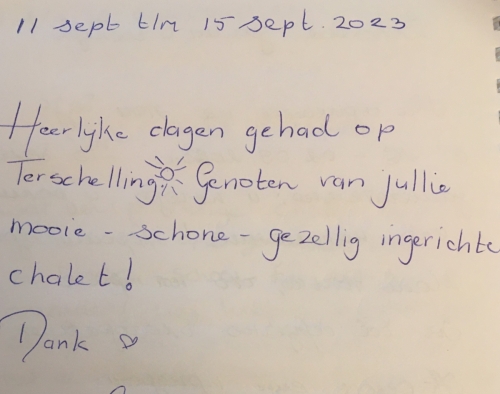 11 sept t/m 15 sept. 2023
Heerlijke dagen gehad op
Terschelling ☀ Genoten van jullie
mooie - schone - gezellig ingerichte
chalet!
Dank ♡